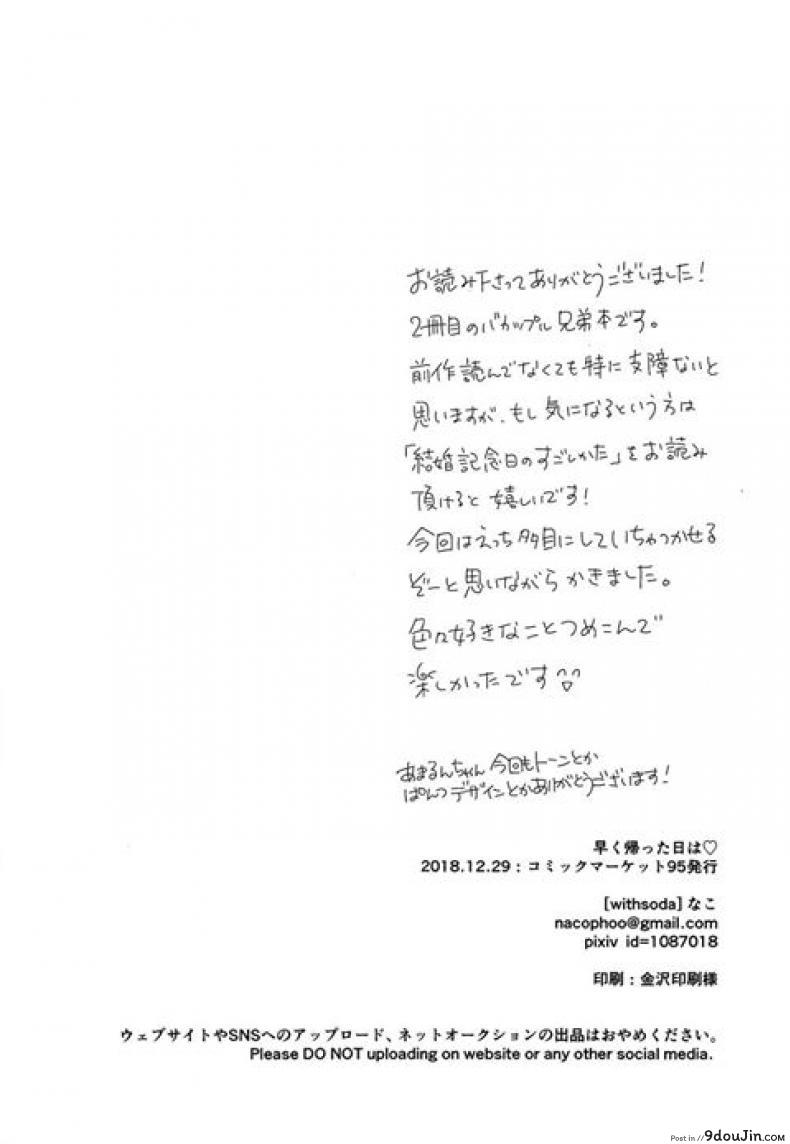 お読み下さってありがとうございました!
2冊目のバカップル兄弟本です。
前作読んでなくても特に支障ないと
思いますが、もし気になるという方は
「結婚記念日のすごしかた」をお読み
頂けると嬉しいです!
今回はえっち多目にしていちゃつかせる
ぞーと思いながらかきました。
色々好きなことつめこんで
楽しかったです♡
あまるんちゃん今回もトーンとか
ぱんつデザインとかありがとうございます!
早く帰った日は♡
2018.12.29:コミックマーケット95発行
[withsoda]なこ
nacophoo@gmail.com
pixiv id=1087018
印刷:金沢印刷様
ウェブサイトやSNSへのアップロード、ネットオークションの出品はおやめください。
Please DO NOT uploading on website or any other social media.
Post in //9douJin.com